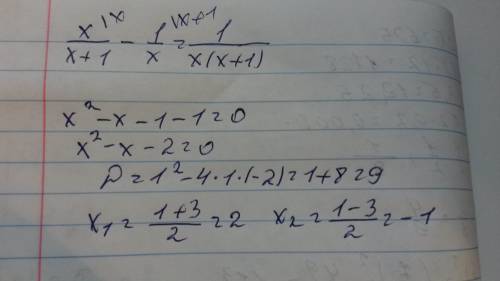 x\x/x+1 - 1\x+1/x = 1/x(x+1)
x² - x - 1 - 1 = 0
x² - x - 2 = 0
D = 1² - 4·1·(-2) = 1 + 8 = 9
x₁ = 1+3/2 = 2 x₂ = 1-3/2 = -1